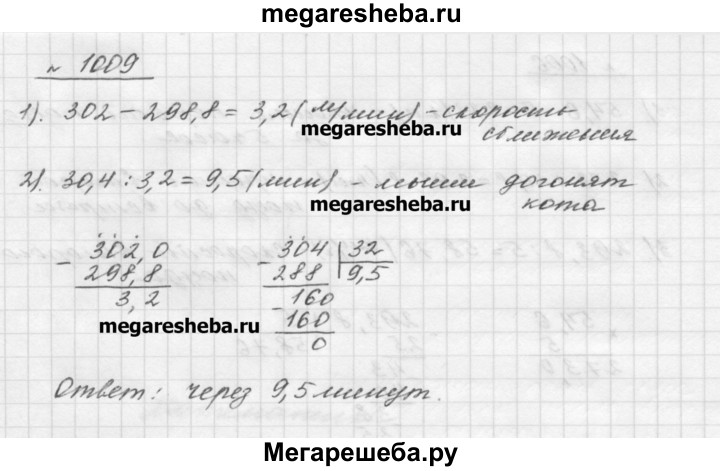 megaresheba.ru
№ 1009
1). 302 – 298,8 = 3,2 (м/мин) – скорость
megaresheba.ru
сближения
2). 30,4 : 3,2 = 9,5 (мин) – мыши догонят
megaresheba.ru
кота
– 302,0 – 304 | 32
298,8 288 9,5
3,2 – 160
megaresheba.ru 160
0
Ответ: через 9,5 минут.
Мегарешеба.ру